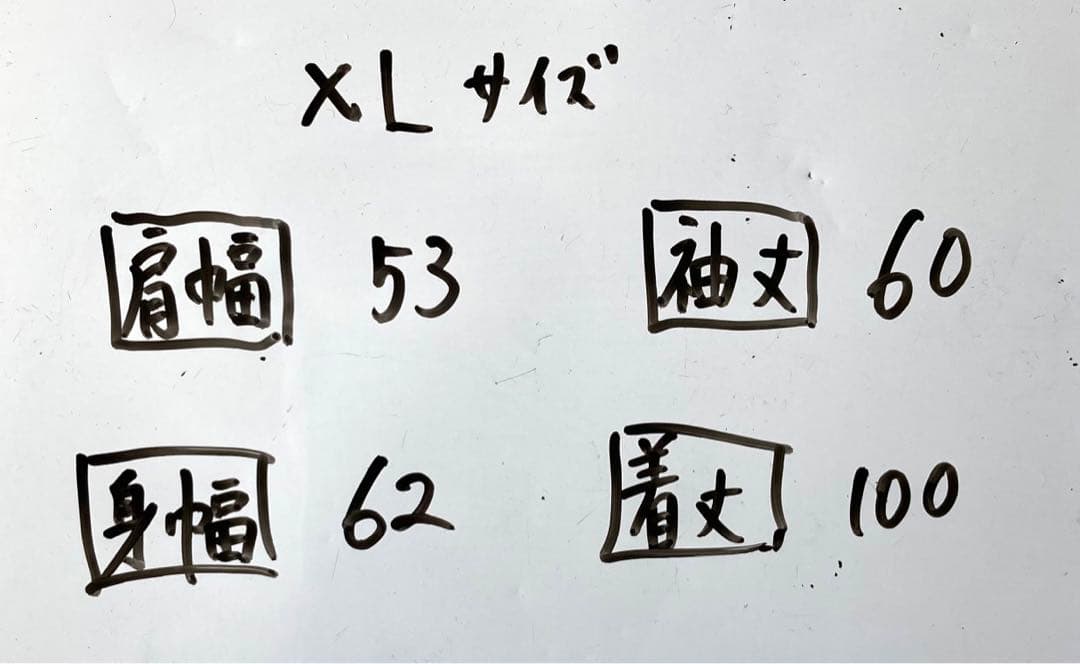 XL サイズ
肩幅 53 袖丈 60
身幅 62 着丈 100